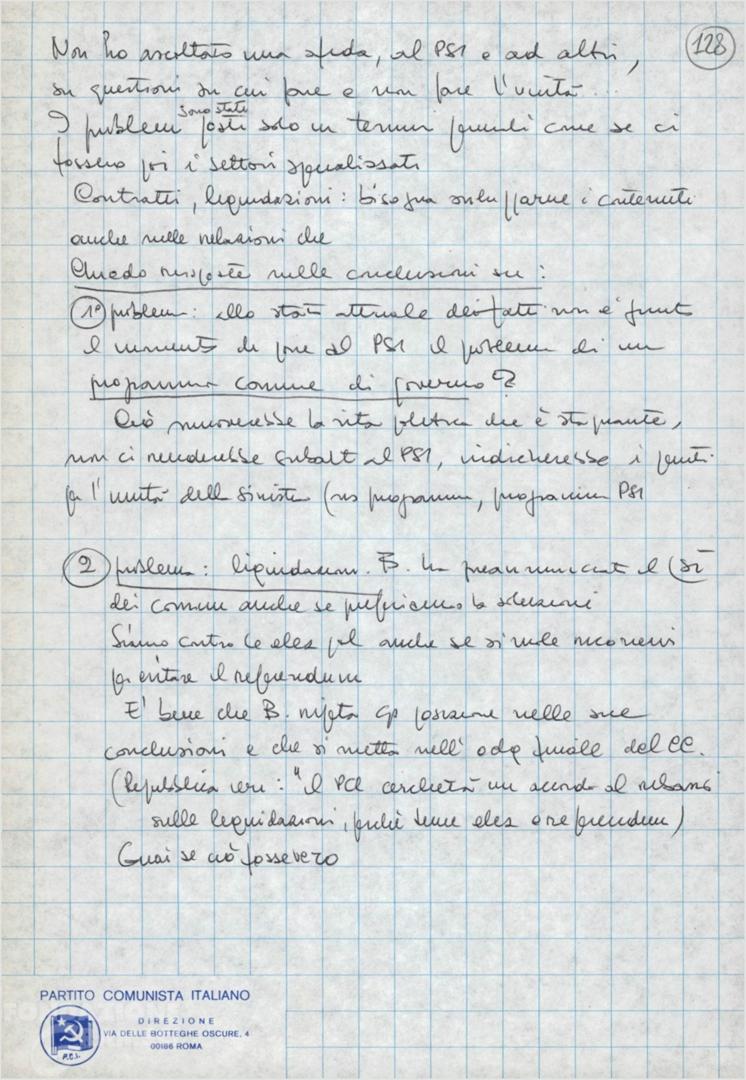 128
Non ho ascoltato una sfida, al PSI e ad altri,
su questioni su cui fare e non fare l'unità...
sono stati
I problemi posti solo in termini come se ci
fossero poi i settori specializzati
Contratti, liquidazioni: bisogna sviluppare i contenuti
anche nelle relazioni che
Chiedo risposte nelle conclusioni su:
1° problema: allo stato attuale dei fatti non è giunto
il momento di porre al PSI il problema di un
programma comune di governo?
Ciò smuoverebbe la vita politica che è stagnante,
non ci renderebbe subalt al PSI, indicherebbe i punti
per l'unità della sinistra (ns programma, programma PSI
2 problema: liquidazioni. B. ha preannunciato il (sì
dei comun anche se preferiamo la soluzione
Siamo contro le elez pol anche se si vuole ricorrervi
per evitare il referendum
E' bene che B. ripeta posizione nelle sue
conclusioni e che si metta nell' odg finale del CC.
(Repubblica ieri: "il PCI cercherà un accordo al ribasso
sulle liquidazioni, perchè teme elez o referendum)
Guai se ciò fosse vero
PARTITO COMUNISTA ITALIANO
DIREZIONE
VIA DELLE BOTTEGHE OSCURE, 4
00186 ROMA
P.C.I.